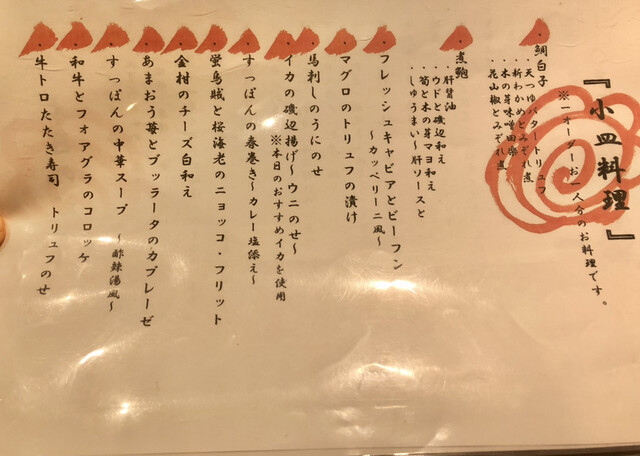 『小皿料理』
※一オーダーお一人分のお料理です。
・鯛白子
・天つゆバタートリュフ
・新わかめとみぞれ煮
・木の芽味噌田楽
・花山椒とみぞれ煮
・煮鮑
・肝醤油
・ウドと磯辺和え
・筍と木の芽マヨ和え
・しゅうまい～肝ソースと
・フレッシュキャビアとビーフン
～カッペリーニ風～
・マグロのトリュフの漬け
・馬刺しのうにのせ
・イカの磯辺揚げ～ウニのせ～
※本日のおすすめイカを使用
・すっぽんの春巻き～カレー塩添え～
・蛍烏賊と桜海老のニョッコ・フリット
・金柑のチーズ白和え
・あまおう苺とブッラータのカプレーゼ
・すっぽんの中華スープ ～酢辣湯風～
・和牛とフォアグラのコロッケ
・牛トロたたき寿司 トリュフのせ